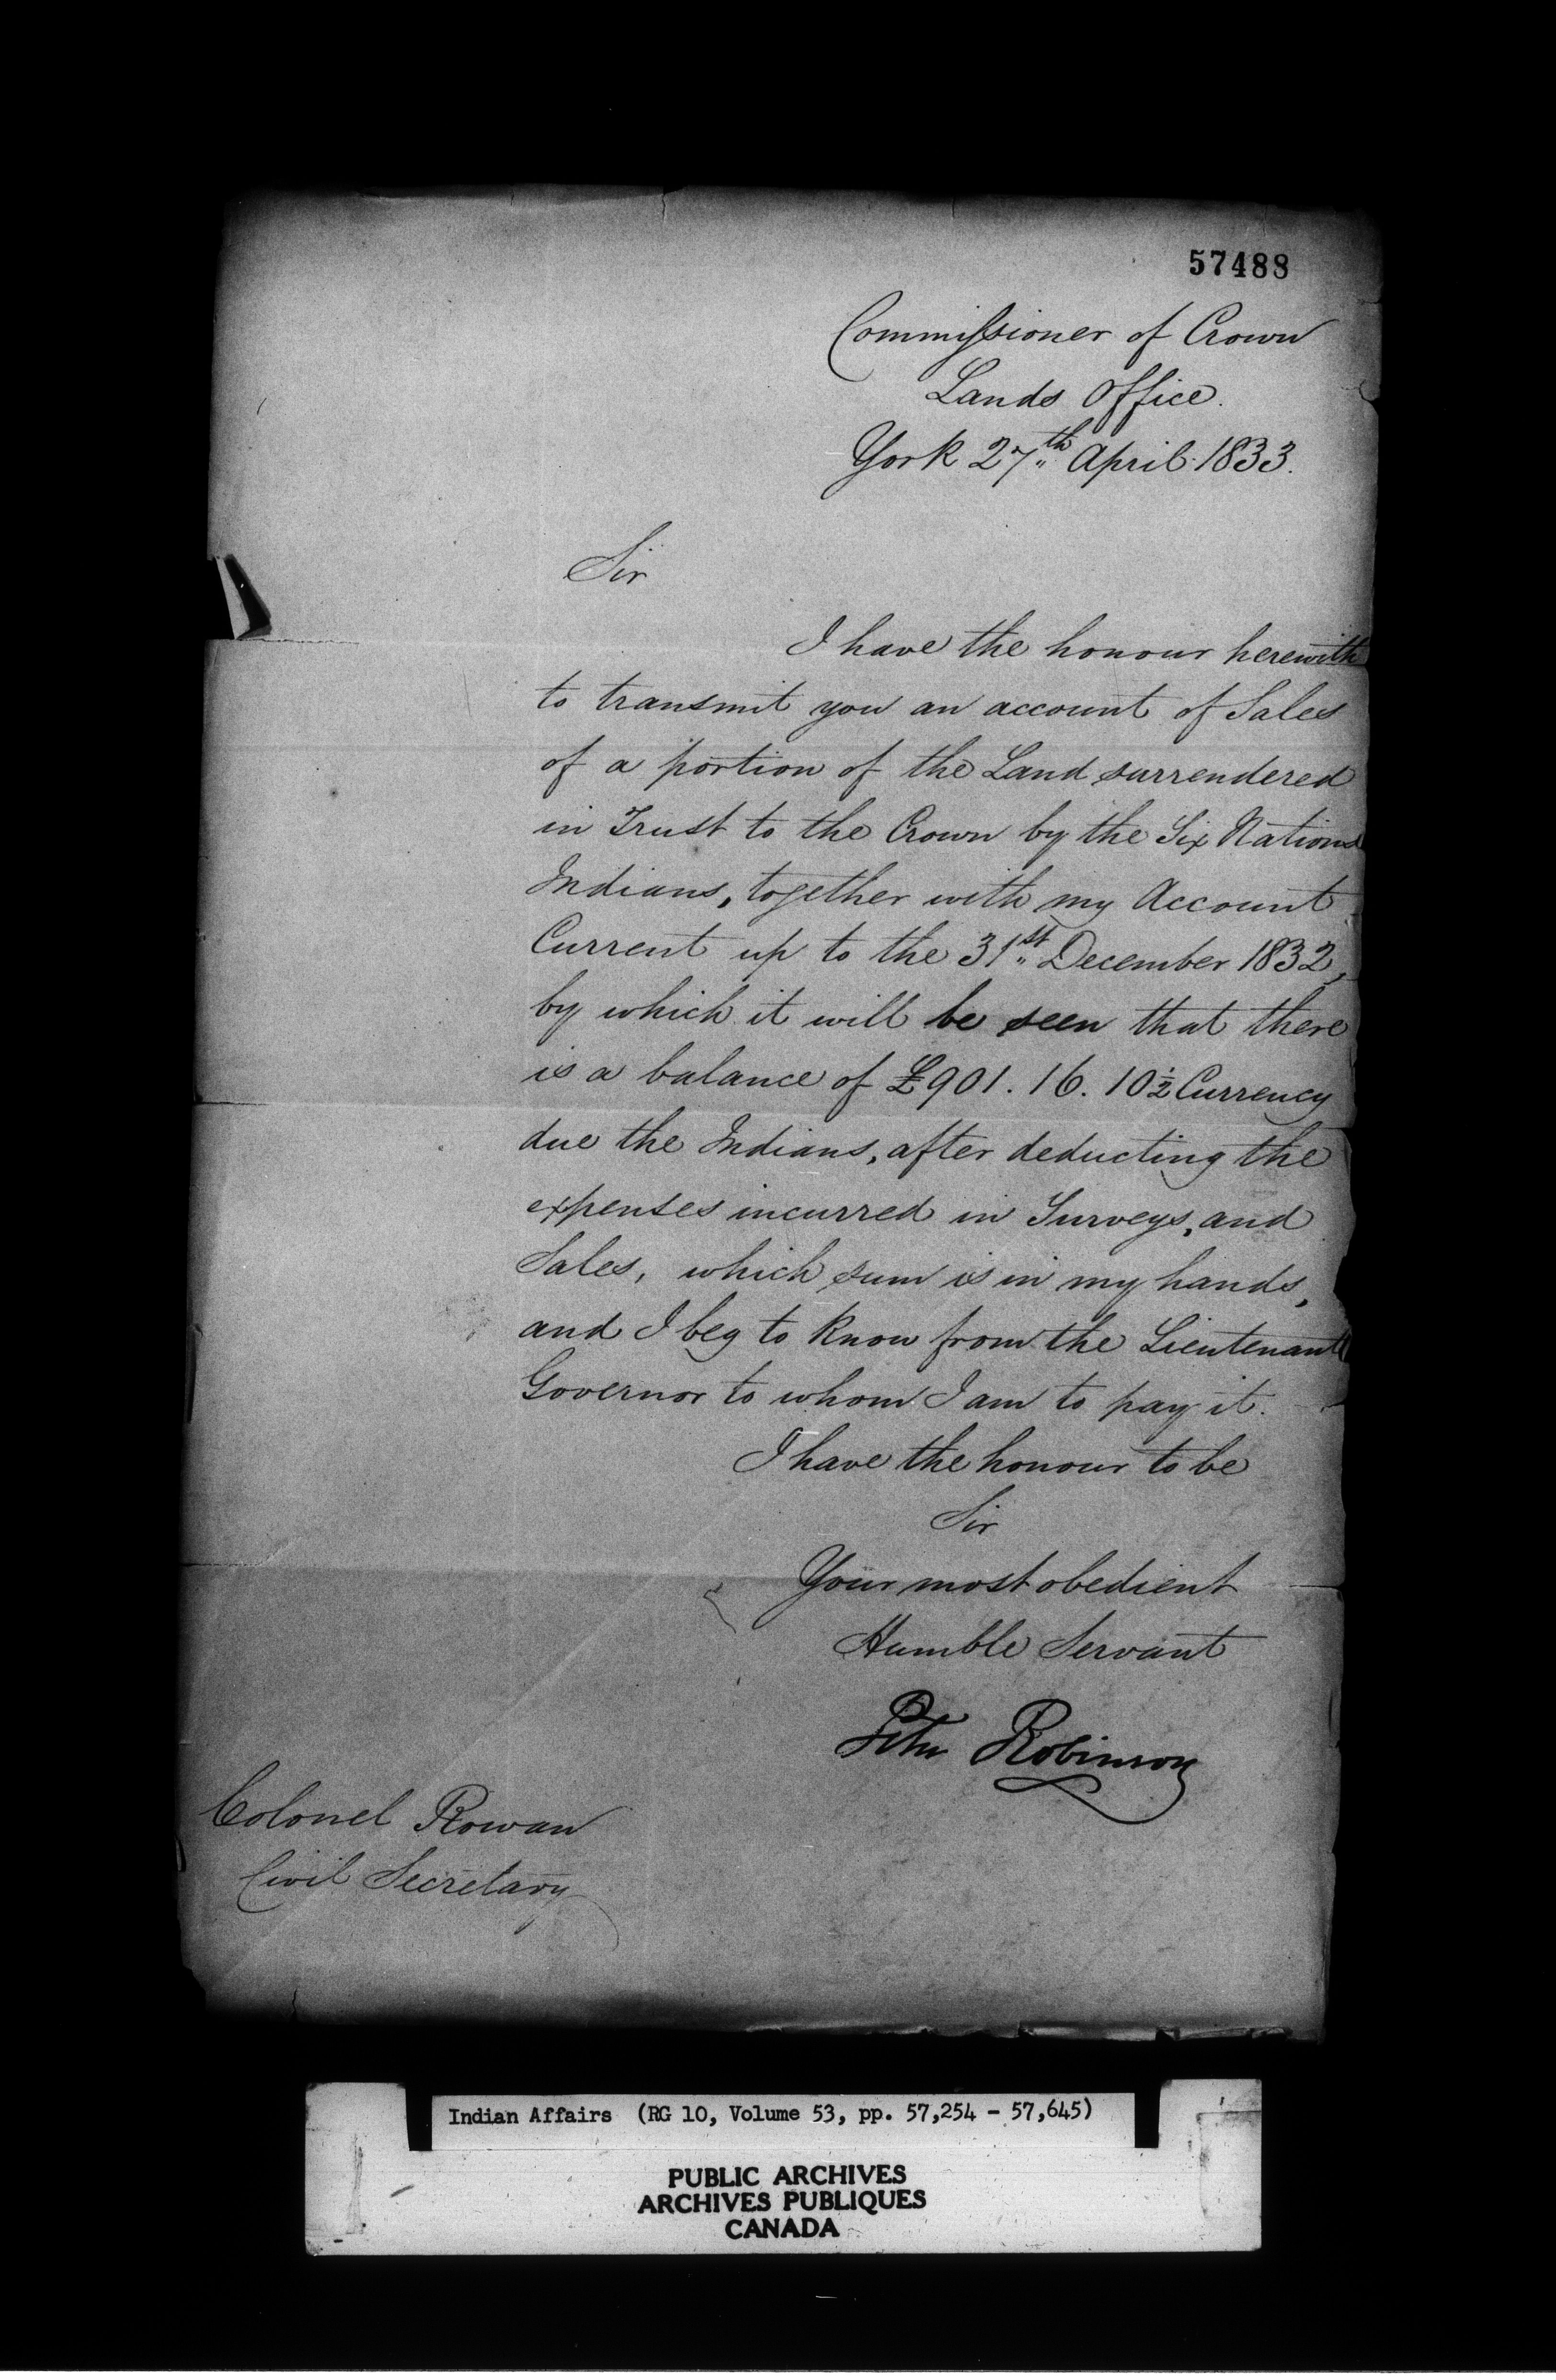 57488
Commissioner of Crown
Lands Office.
York 27th April 1833.
Sir
I have the honour herewith
to transmit you an account of Sales
of a portion of the Land surrendered
in Trust to the Crown by the Six Nations
Indians, together with my Account
Current up to the 31st December 1832,
by which it will be seen that there
is a balance of £901. 16. 10½ Currency
due the Indians, after deducting the
expenses incurred in Surveys, and
Sales, which sum is in my hands,
and I beg to know from the Lieutenant
Governor to whom I am to pay it.
I have the honour to be
Sir
Your most obedient
Humble Servant
Peter Robinson
Colonel Rowan
Civil Secretary
Indian Affairs (RG 10, Volume 53, pp. 57,254 - 57,645)
PUBLIC ARCHIVES
ARCHIVES PUBLIQUES
CANADA